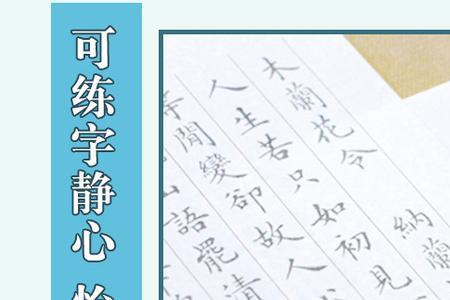 可练字静心
木蘭花令 納蘭
人生若只如初見
等閒變卻故人
山語罷清